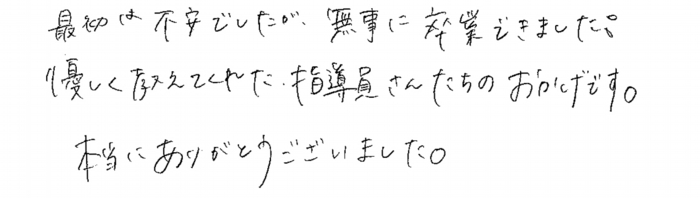 最初は不安でしたが、無事に卒業できました。
優しく教えてくれた、指導員さんたちのおかげです。
本当にありがとうございました。